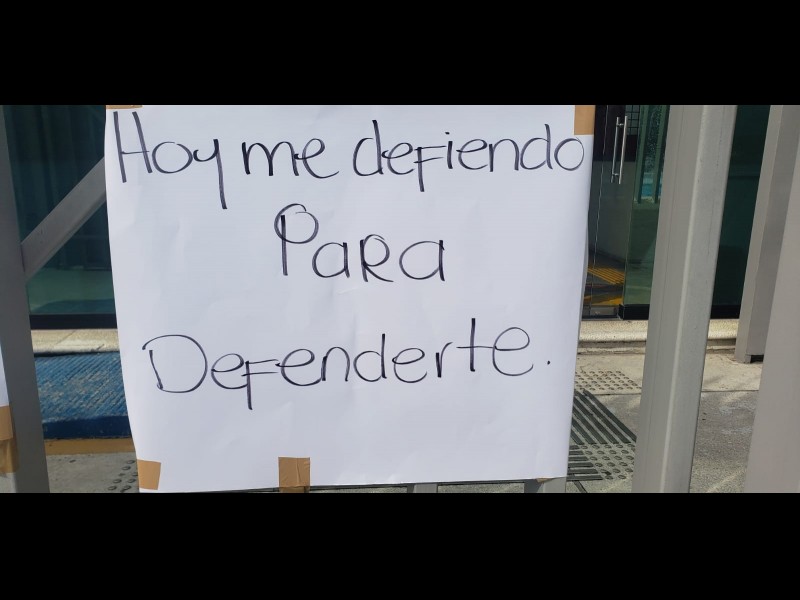 Hoy me defiendo
Para
Defenderte.